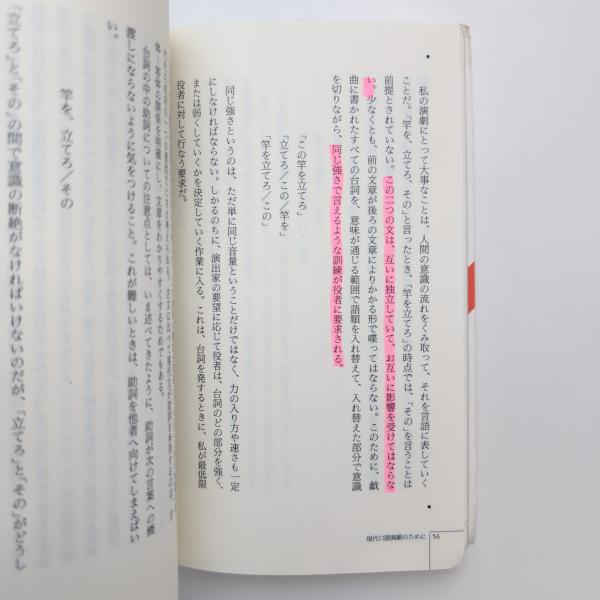 私の演劇にとって大事なことは、人間の意識の流れをくみ取って、それを言語に表していく
ことだ。「竿を、立てろ、その」と言ったとき、「竿を立てろ」の時点では、「その」を言うことは
前提とされていない。この二つの文は、互いに独立していて、お互いに影響を受けてはならな
い。少なくとも、前の文章が後ろの文章によりかかる形で喋ってはならない。このために、戯
曲に書かれたすべての台詞を、意味が通じる範囲で語順を入れ替えて、入れ替えた部分で意識
を切りながら、同じ強さで言えるような訓練が役者に要求される。
「この竿を立てろ」
「立てろ/この/竿を」
「竿を立てろ/この」
同じ強さというのは、ただ単に同じ音量ということだけではなく、力の入り方や速さも一定
にしなければならない。しかるのちに、演出家の要望に応じて役者は、台詞のどの部分を強く、
または弱くしていくかを決定していく作業に入る。これは、台詞を発するときに、私が最低限
役者に対して行なう要求だ。
現代口語演劇のために 56
台詞の中の助詞についての注意点としては、いま述べてきたように、助詞が次の言葉への橋
渡しにならないように気をつけること。これが難しいときは、助詞を他者へ向けてしまえばい
い。
竿を、立てろ/その
「立てろ」と「その」の間で意識の断絶がなければいけないのだが、「立てろ」と「その」がどうし